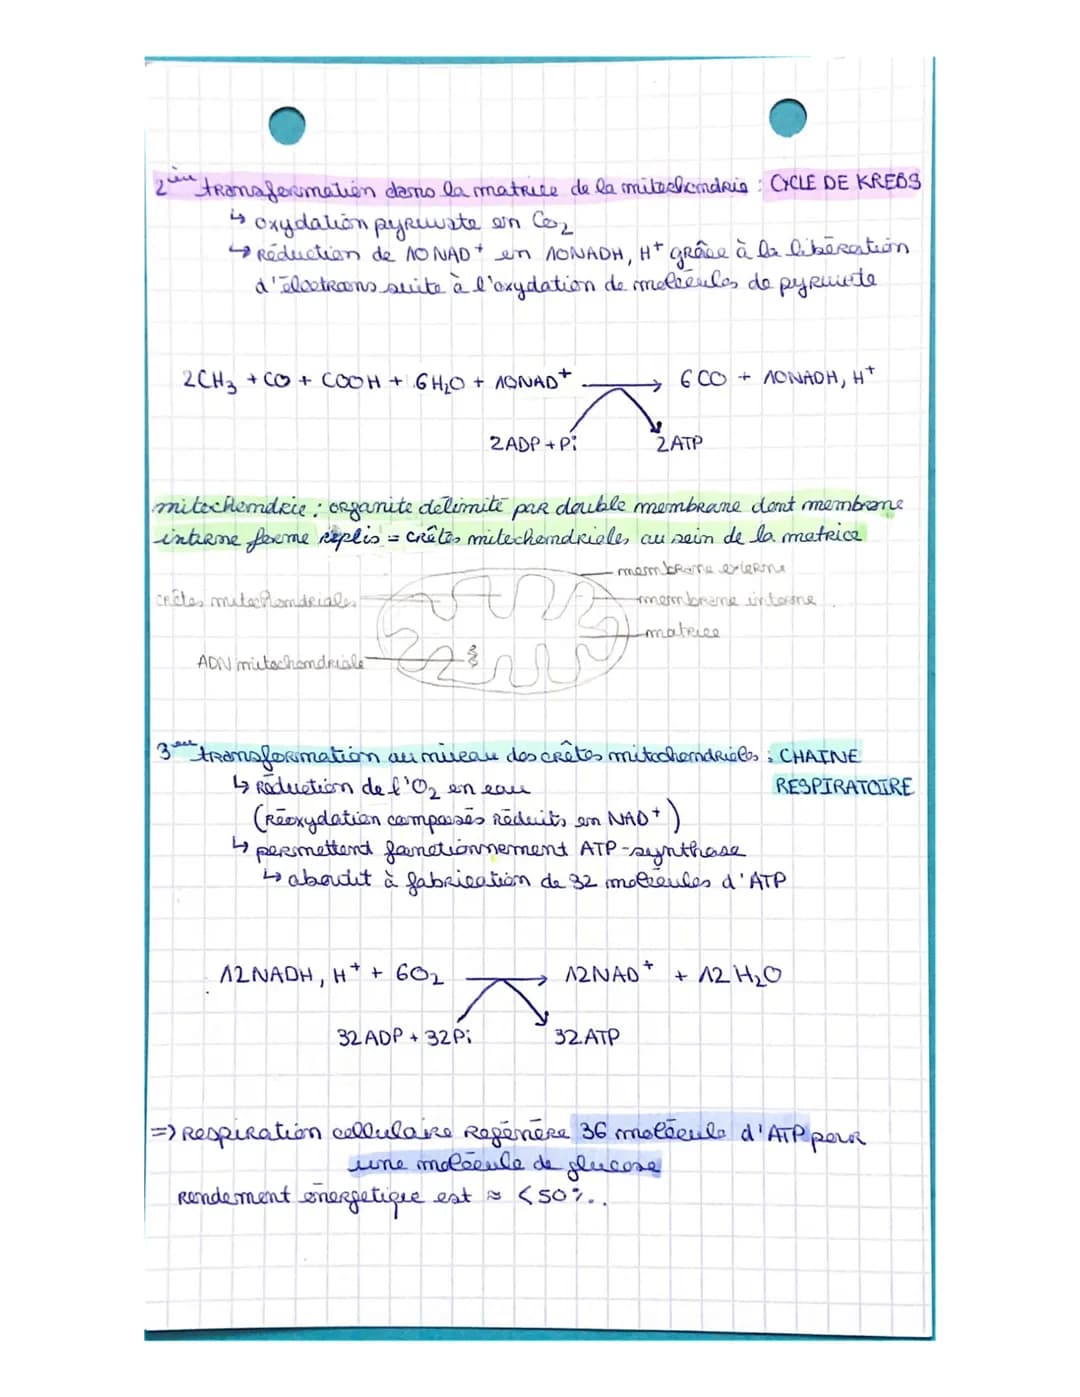 2ème transformation dans la matrice de la mitochondrie : CYCLE DE KREBS
↳ oxydation pyruvate en CO₂
↳ Réduction de 10 NAD⁺ en 10NADH, H⁺ grâce à la libération
d'électrons suite à l'oxydation de molécules de pyruvate
2CH₃ + CO + COOH + 6H₂O + 10NAD⁺ → 6 CO + 10NADH, H⁺
2ADP + Pi 2ATP
mitochondrie : organite délimité par double membrane dont membrane
interne forme replis = crêtes mitochondriales, au sein de la matrice
membrane externe
crêtes mitochondriales
membrane interne
matrice
ADN mitochondriale
3ème transformation au niveau des crêtes mitochondriales : CHAINE
RESPIRATOIRE
↳ Réduction de l'O₂ en eau
(Réoxydation composés réduits en NAD⁺)
↳ permettend fonctionnement ATP-synthase
↳ aboutit à fabrication de 32 molécules d'ATP
12NADH, H⁺ + 6O₂ → 12NAD⁺ + 12 H₂O
32ADP + 32Pi 32ATP
=> Respiration cellulaire Régénère 36 molécule d'ATP pour
une molécule de glucose
Rendement énergetique est ≈ < 50%..